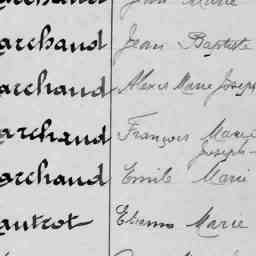 archaud Jean Marie
archaud Jean Baptiste
archaud Alexis Marie Joseph
archaud François Marie
Joseph
archaud Emile Marie
autrot Etienne Marie